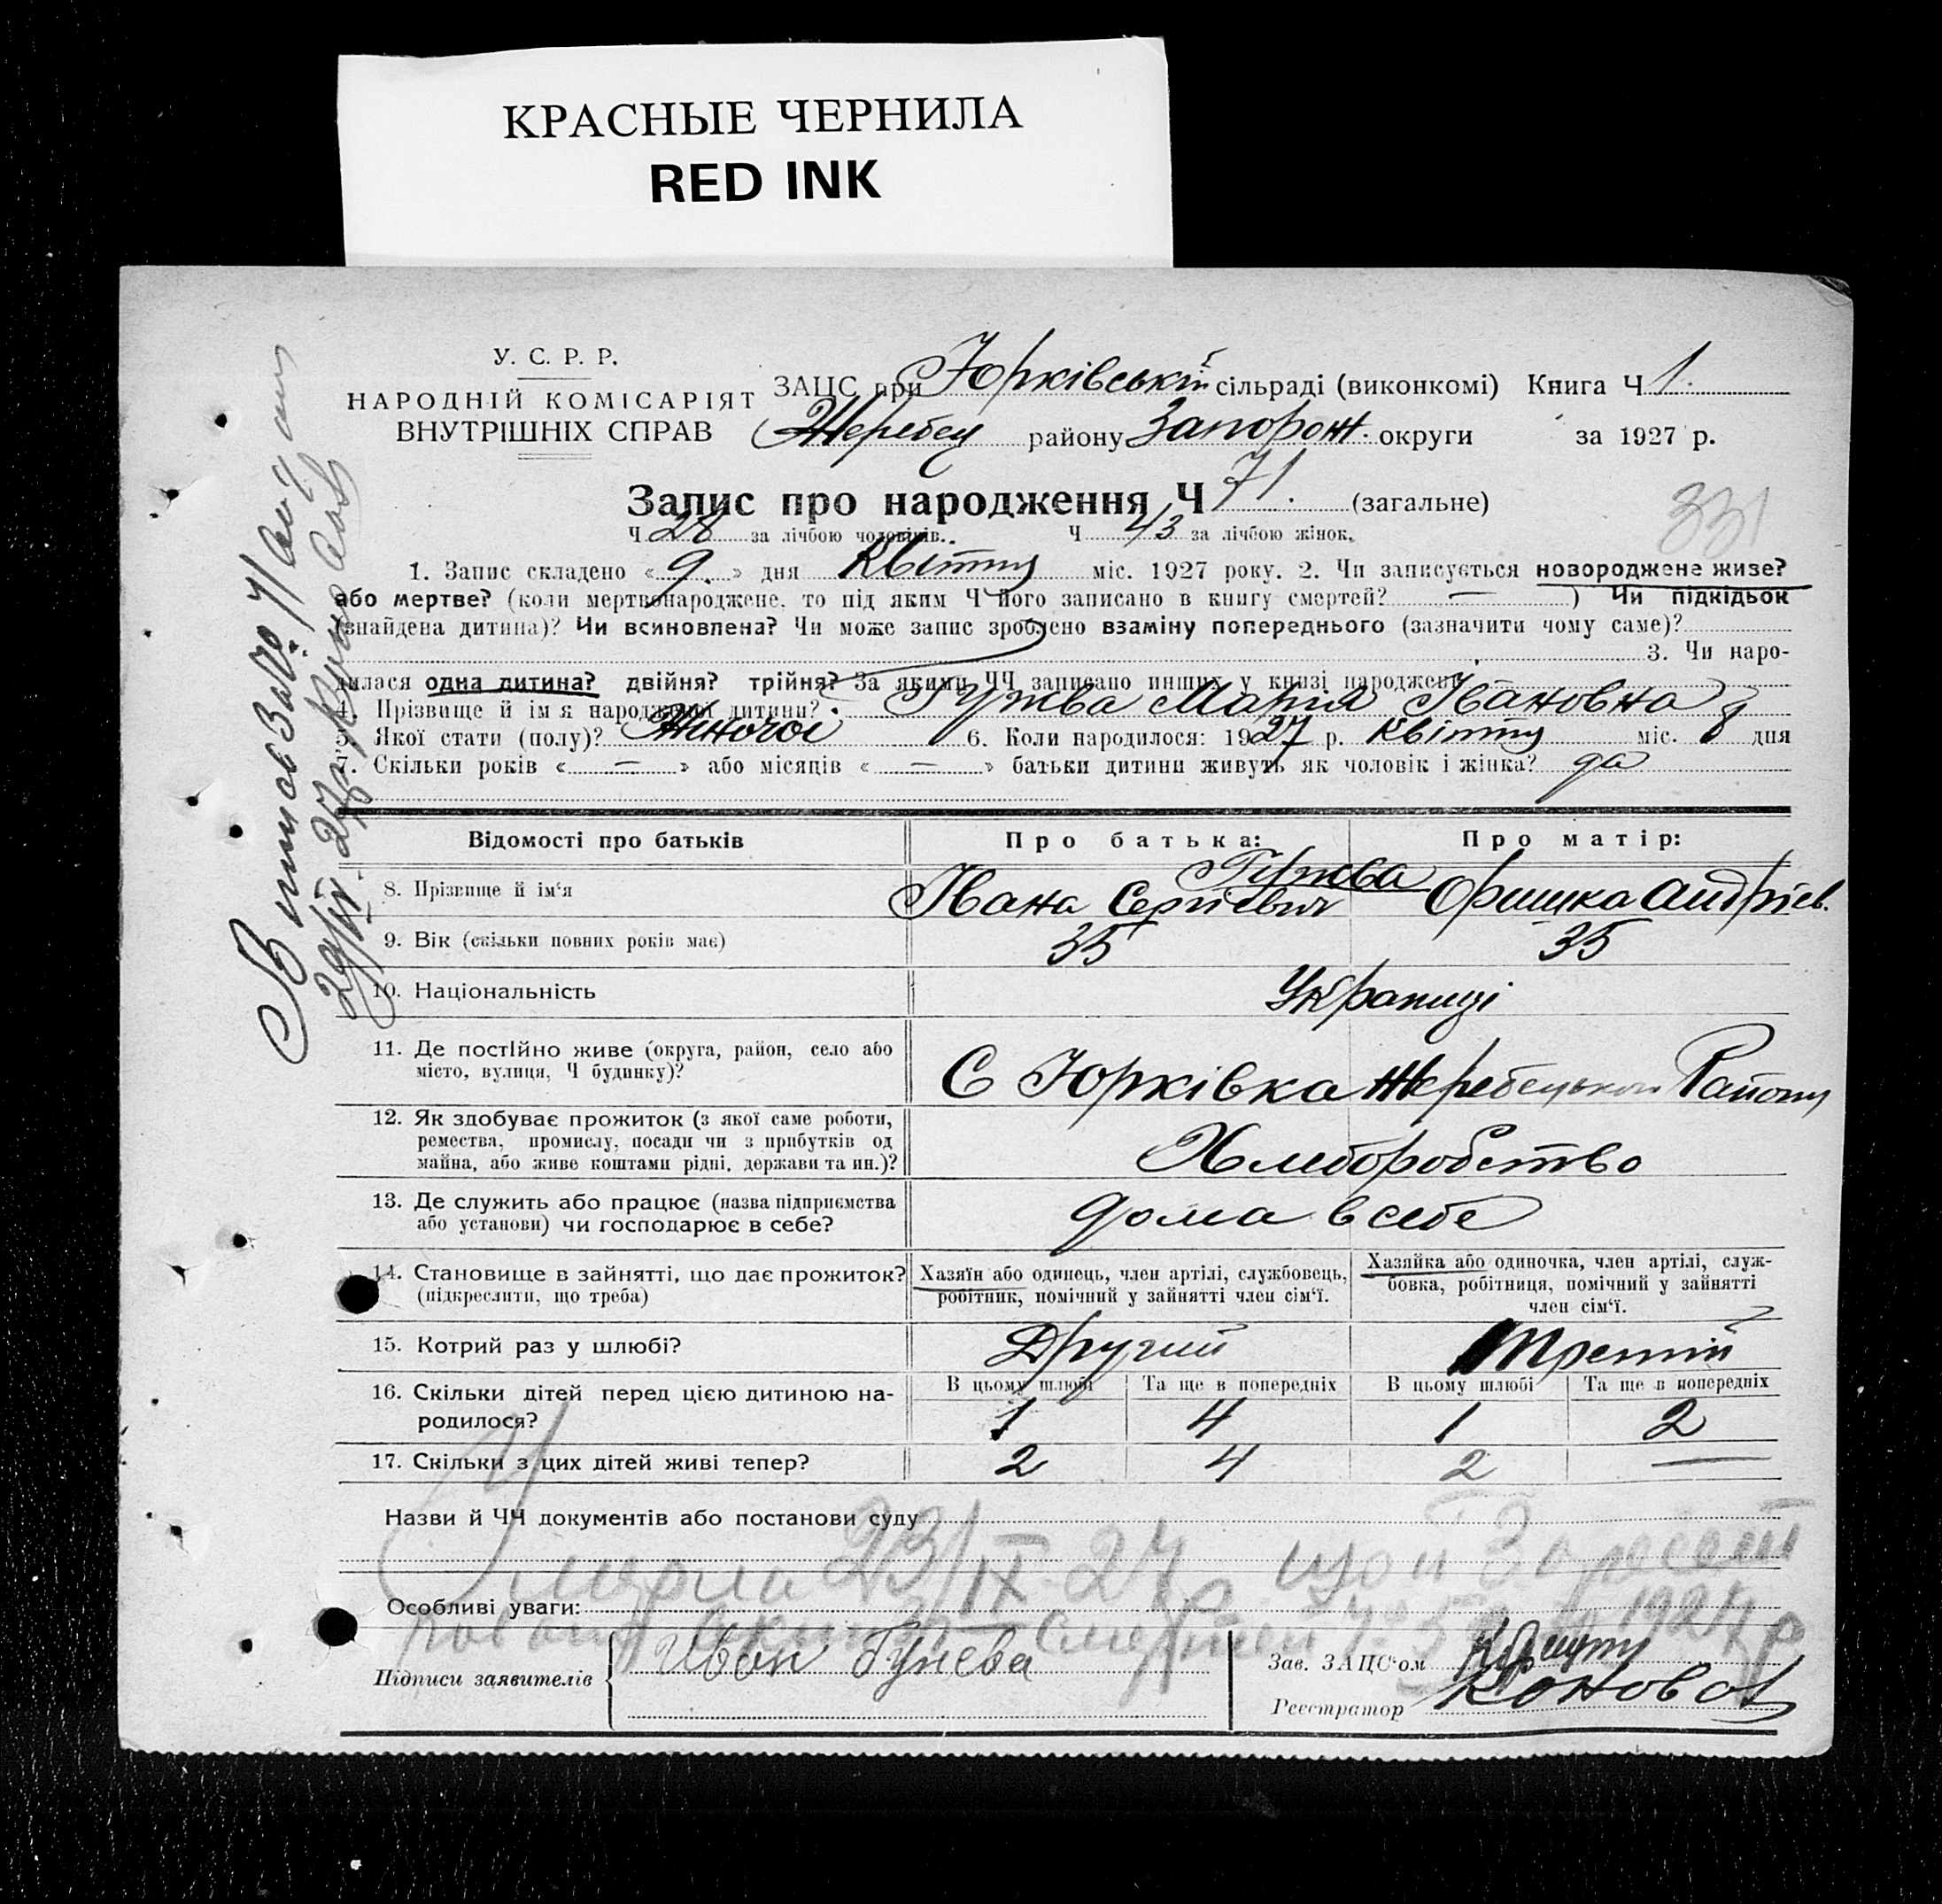 КРАСНЫЕ ЧЕРНИЛА
RED INK
У. С. Р. Р.
НАРОДНІЙ КОМІСАРІЯТ
ВНУТРІШНІХ СПРАВ
ЗАЦС при Юрківській сільраді (виконкомі) Книга Ч 1.
Жеребец району Запорож. округи за 1927 р.
Запис про народження Ч 71. (загальне)
331
Ч 28 за лічбою чоловіків. Ч 43 за лічбою жінок.
1. Запис складено « 9. » дня Квітня міс. 1927 року. 2. Чи записується новороджене живе?
або мертве? (коли мертвонароджене, то під яким Ч його записано в книгу смертей? — ) Чи підкідьок
(знайдена дитина)? Чи всиновлена? Чи може запис зроблено взаміну попереднього (зазначити чому саме)?
3. Чи наро-
дилася одна дитина? двійня? трійня? За якими ЧЧ записано инших у книзі народжень
4. Прізвище й ім'я народженої дитини? Гужва Марія Івановна
5. Якої стати (полу)? Жіночої 6. Коли народилося: 1927 р. Квітня міс. 8 дня
7. Скільки років « — » або місяців « — » батьки дитини живуть як чоловік і жінка? да
Відомості про батьків Про батька: Про матір:
Гужва
8. Прізвище й ім'я Івана Сергієвич Оришка Андрієв.
9. Вік (скільки повних років має) 35 35
10. Національність Украпиці
11. Де постійно живе (округа, район, село або
місто, вулиця, Ч будинку)? С Юрківка Жеребецького Району
12. Як здобуває прожиток (з якої саме роботи,
ремества, промислу, посади чи з прибутків од
майна, або живе коштами рідні, держави та ин.)? Хлеборобство
13. Де служить або працює (назва підприємства
або установи) чи господарює в себе? дома в себе
14. Становище в зайнятті, що дає прожиток?
(підкреслити, що треба)
Хазяїн або одинець, член артілі, службовець,
робітник, помічний у зайнятті член сім'ї.
Хазяйка або одиночка, член артілі, служ-
бовка, робітниця, помічний у зайнятті
член сім'ї.
15. Котрий раз у шлюбі? Другий Третій
16. Скільки дітей перед цією дитиною на-
родилося?
В цьому шлюбі Та ще в попередніх В цьому шлюбі Та ще в попередніх
1 4 1 2
17. Скільки з цих дітей живі тепер? 2 4 2 —
Назви й ЧЧ документів або постанови суду
Умерла 23/IX 27 р. що й Зареєст
Особливі уваги:
1927 р
Підписи заявителів Иван Гужва
Зав. ЗАЦС'ом
Реєстратор Коновал